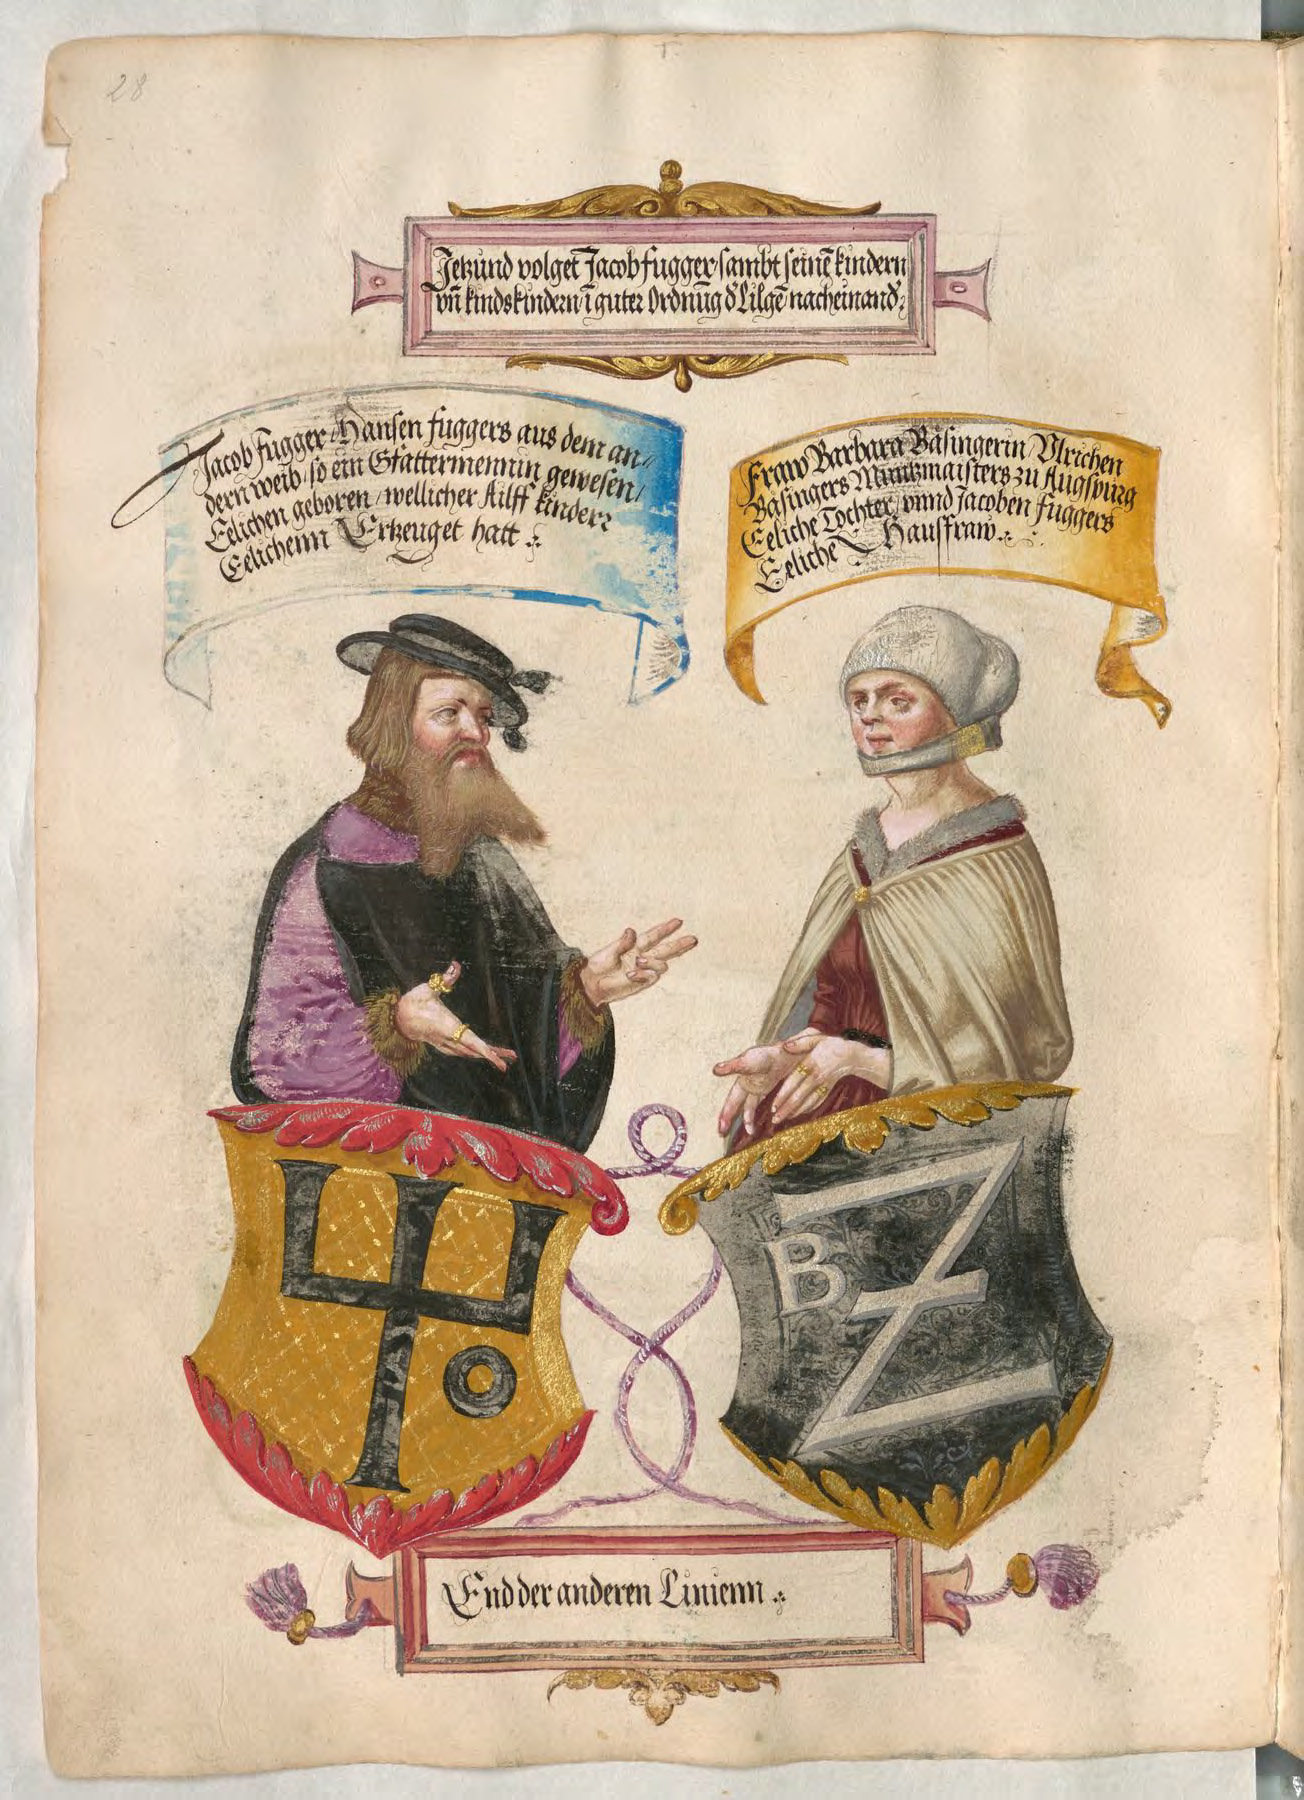 28
Jetzund volget Jacob fugger sambt seinē kindern
vn̄ kindskindern ī guter Ordnūg d' Lilgē nacheinand'.
Jacob fugger Hansen fuggers aus dem an//
dern weib / so ein Gfattermennin gewesen /
Eelichen geboren / wellicher Ailff kinder
Eelichenn Ertzeuget hatt
Fraw Barbara Basingerin Ulrichen
Basingers Müntzmaisters zu Augspurg
Eeliche Tochter, vnnd Jacoben fuggers
Eeliche Hausfraw.
B
End der anderen Linienn